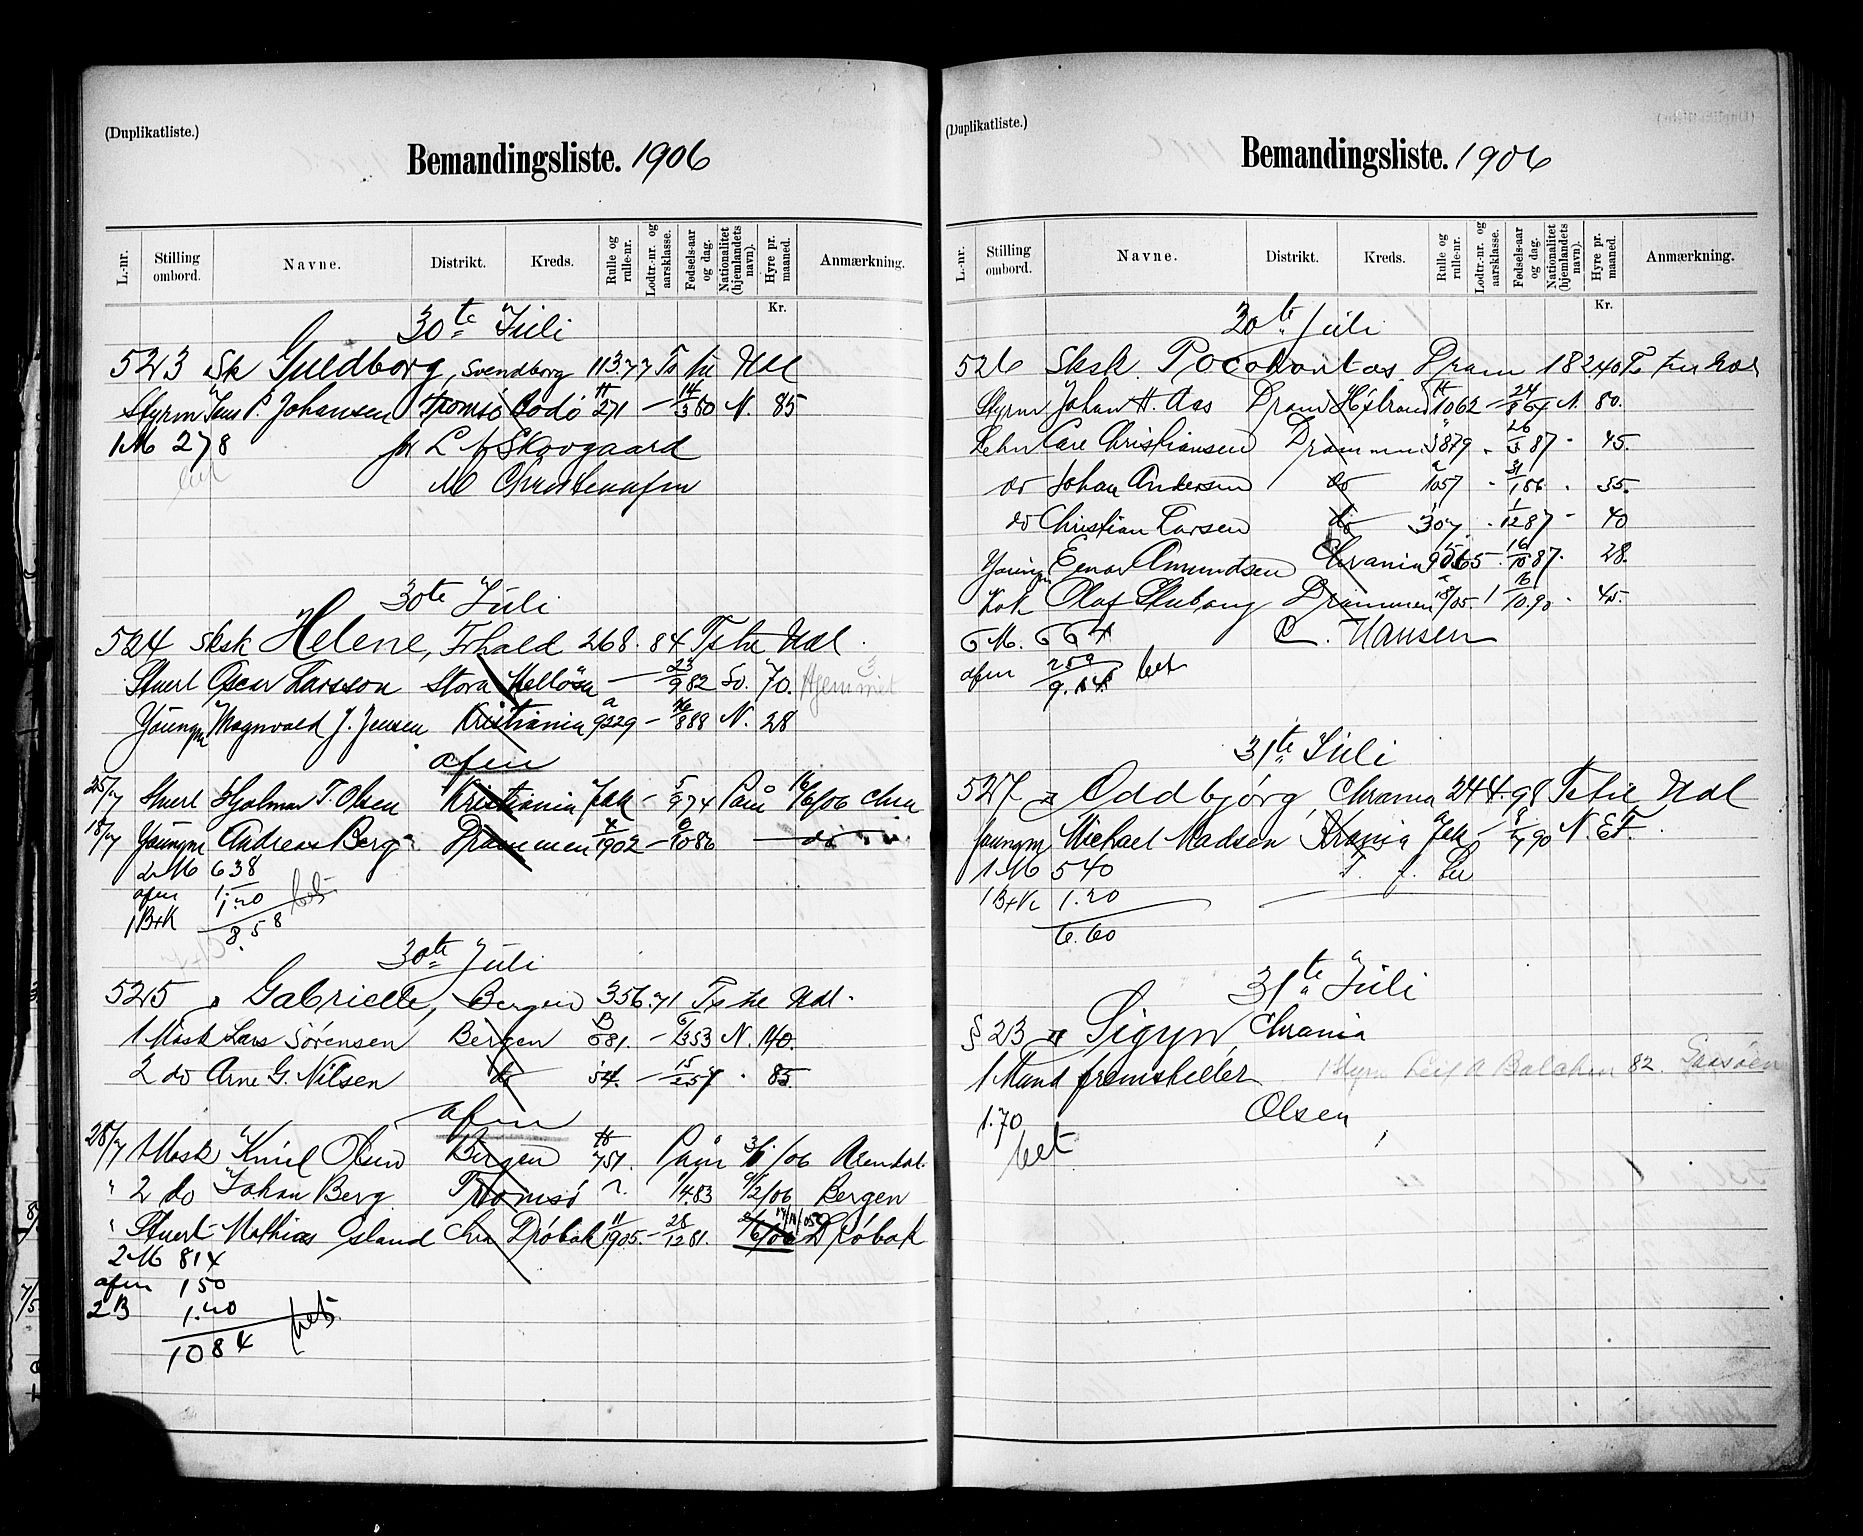 (Duplikatliste.)
Bemandingsliste. 1906
L.-nr. Stilling ombord. Navne. Distrikt. Kreds. Rulle og rulle-nr. Lodtr.-nr. og aarsklasse. Fødsels-aar og dag. Nationalitet (hjemlandets navn). Hyre pr. maaned. Anmærkning.
Kr.
30te Juli
523 Sk Guldborg, Svendborg 113.77 Ts tre Udl
Styrm Jens P. Johansen Tromsø Bodø 271 — 14/3 60 N. 85
1 M 278 L Skovgaard
M Christensen
30te Juli
524 Sksk Helene, Frhald 268. 84 Ts tre Udl.
Stuert Oscar Larsson Stora Mellösa — 23/9 82 Sv. 70. Hjemmet
Youngm Magnvald J. Jensen Kristiania 9229 — 16/8 88 N. 28
afm
25/7 Stuert Hjalmar T. Olsen Kristiania Jek — 5/9 74 Paam 16/6/06 Chra
18/7 Youngm Andreas Berg Drammen 1902 — 6/10 86 — do
2 M 638
afm 1.
1 B+K 1.20 bet
8.58
30te Juli
525 " Gabrielle, Bergen 356.71 Ts tre Udl.
1 Mask Lars Sörensen Bergen B 681. — 6/3 53 N. 140.
2 do Arne G. Nilsen do 54. — 15/2 57 . 85
afm
28/7 1 Mask Emil Olsen Bergen 757. Paam 3/1/06 Arendal.
" 2 do Johan Berg Tromsø 1/4.83 9/2/06 Bergen
" Stuert Mathias Gsland Chra Dröbak 11/1905. — 28/12 81. Dröbak
2 M 814
afm 150
2 B 1.20 bet
1084
(Duplikatliste.)
Bemandingsliste. 1906
L.-nr. Stilling ombord. Navne. Distrikt. Kreds. Rulle og rulle-nr. Lodtr.-nr. og aarsklasse. Fødsels-aar og dag. Nationalitet (hjemlandets navn). Hyre pr. maaned. Anmærkning.
Kr.
30te Juli
526 Sksk. Pocahontas. Dram 182.40 T tre Udl
Styrm Johan H. Aas Dram 1062 — 24/8 64 N. 80.
Zehn Care Christiansen Drammen 3879 . 26/5 87 - 45.
do Johan Andersen do 1057 . 31/1 56 . 55.
do Christian Larsen do 307 . 1/12 87 - 40
Youngm Einar Amundsen Chrania 16/10 87. 28.
Kok Olaf Skubong Drammen 18/05. 1 16/10.90 . 45.
6 M. 664 C. Hansen
afm 250 bet
9.14
31te Juli
527 " Oddbjørg, Chrania 244.98 Ts tre Udl
Youngm Michael Madsen Krania Jek — 90 N. E F.
1 M 540
1 B+K 1.20
6.60
31te Juli
§ 23 " Sigyn, Chrania
1 Mand fremstiller 1 Styrm Leif A 82.
1.70 Olsen
bet